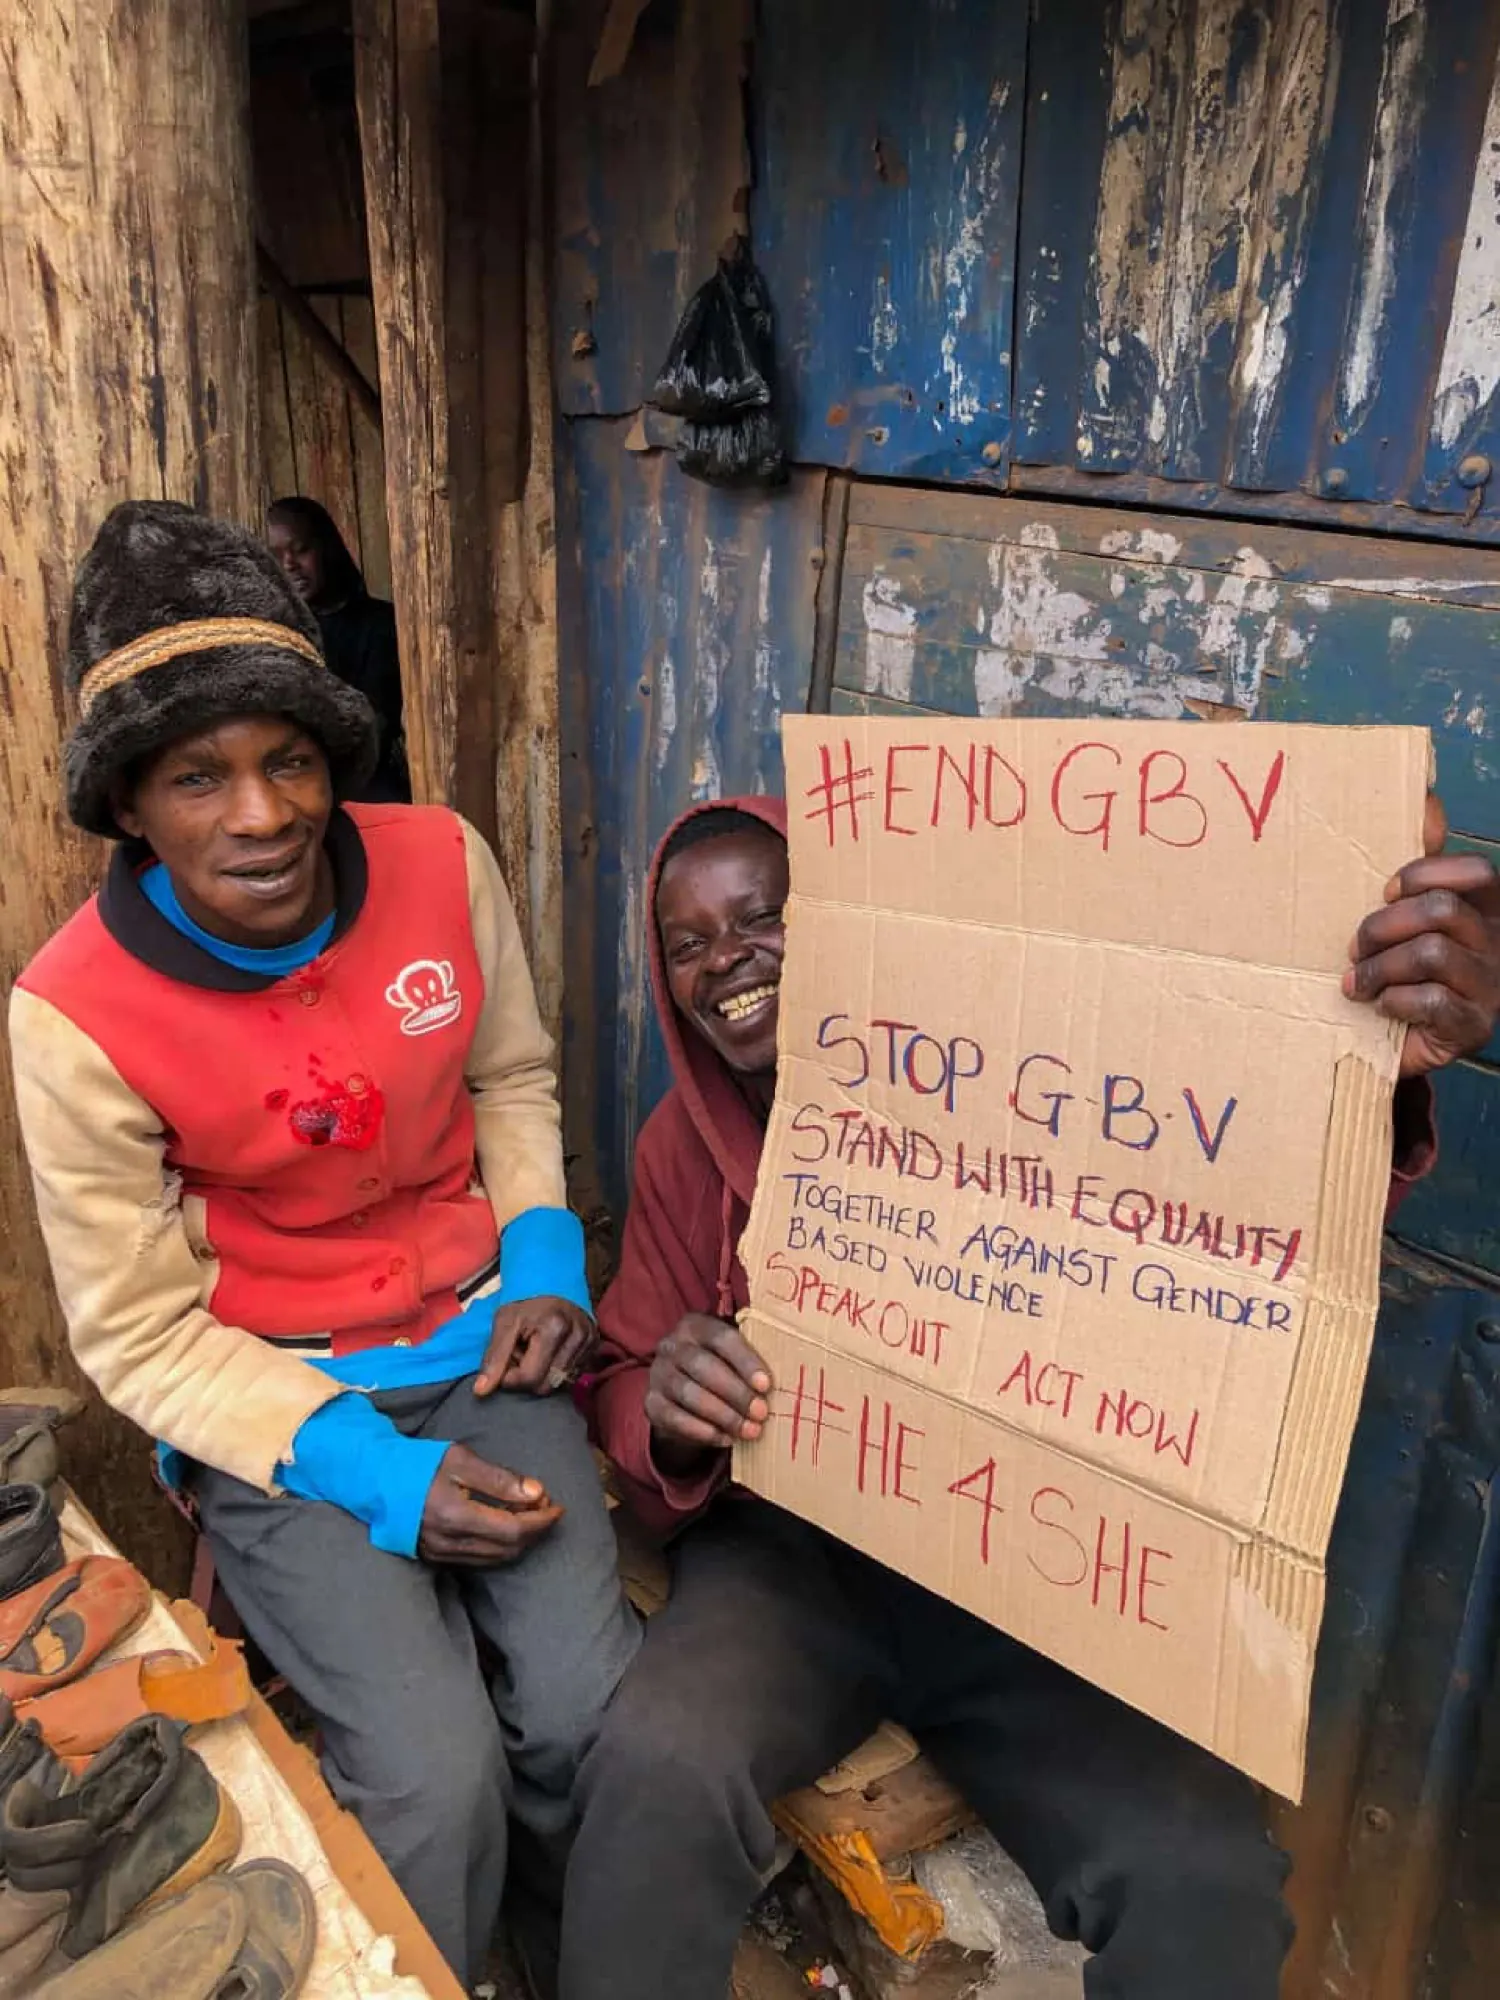 #END GBV
STOP G.B.V
STAND WITH EQUALITY
TOGETHER AGAINST GENDER
BASED VIOLENCE
SPEAK OUT ACT NOW
#HE4SHE